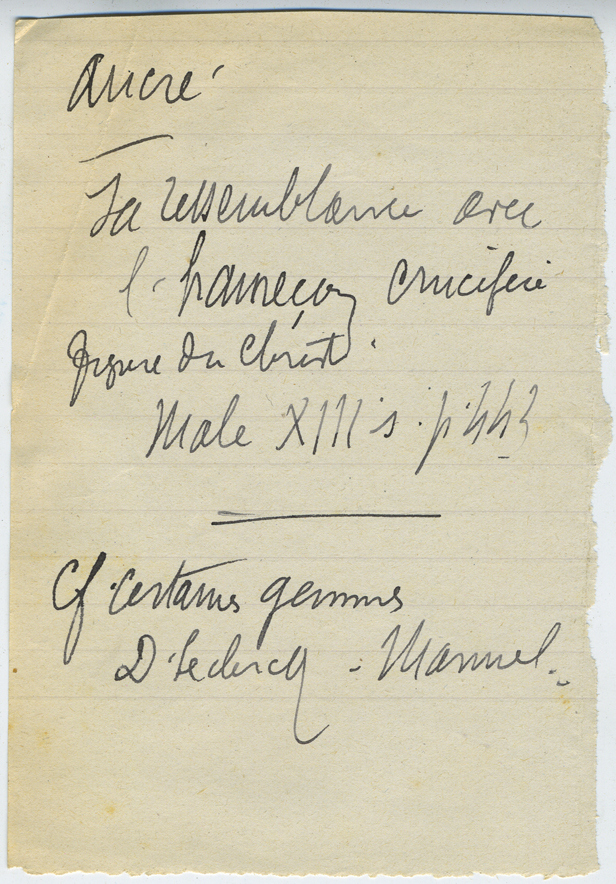 Ancre
Sa ressemblance avec
l'hameçon crucifié
figure du Christ.
Male XIII s. p. 443
Cf. certaines gemmes
D. Leclercq - Manuel.